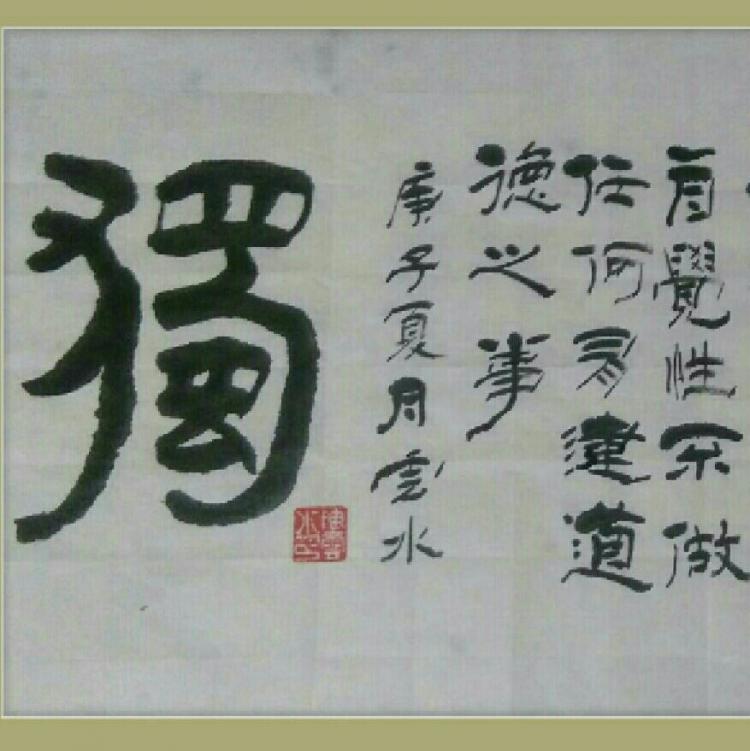 自覺性不做
任何有違道
德之事
庚子夏月雲水
獨